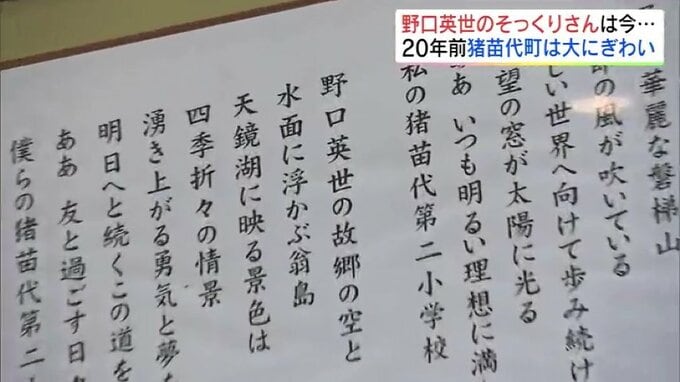 野口英世のそっくりさんは今…
20年前猪苗代町は大にぎわい
華麗な磐梯山
の風が吹いている
しい世界へ向けて歩み続け
望の窓が太陽に光る
ああ いつも明るい理想に満
私の猪苗代第二小学校
野口英世の故郷の空と
水面に浮かぶ翁島
天鏡湖に映る景色は
四季折々の情景
湧き上がる勇気と夢
明日へと続くこの道を
ああ 友と過ごす日
僕らの猪苗代第二